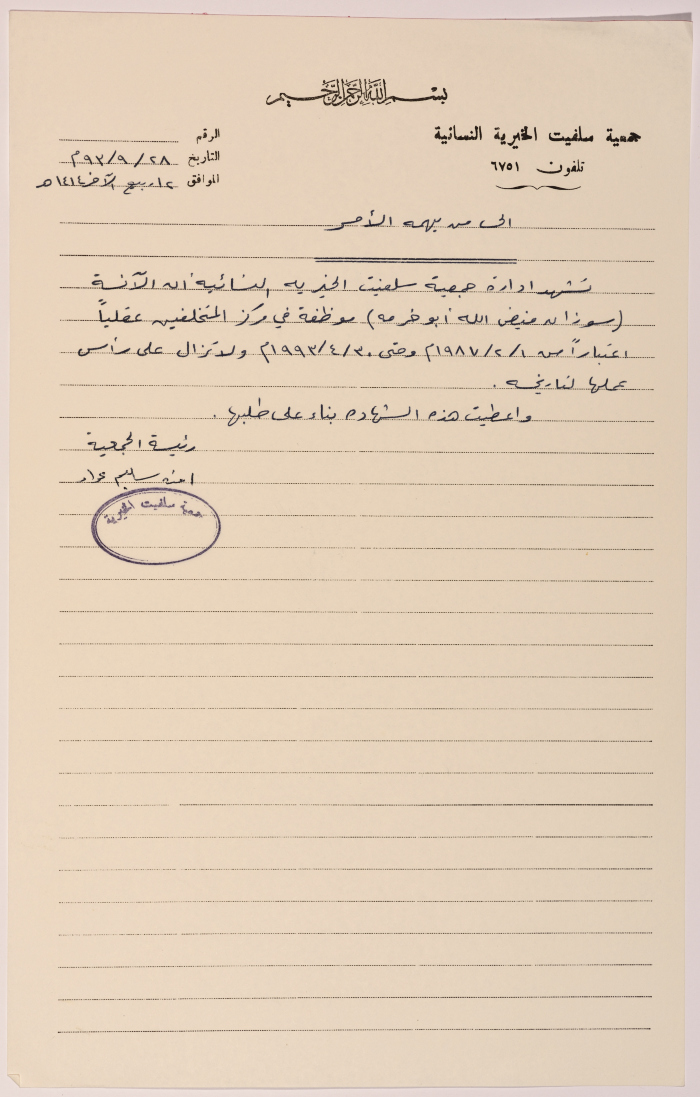 بسم الله الرحمن الرحيم
جمعية سلفيت الخيرية النسائية
تلفون ٦٧٥١
الرقم
التاريخ ٢٨ / ٩ / ٩٣م
الموافق ١٢ ربيع الآخر ١٤١٤هـ
الى من يهمه الأمر
تشهد ادارة جمعية سلفيت الخيريه النسائية أن الآنسة
(سوزان فيض الله أبو خرمه) موظفة في مركز المتخلفين عقلياً
اعتباراً من ١/٢/١٩٨٧م وحتى ٣٠/٤/١٩٩٣م ولا تزال على رأس
عملها لتاريخه .
واعطيت هذه الشهاده بناء على طلبها .
رئيسة الجمعية
سليم
جمعية سلفيت الخيرية